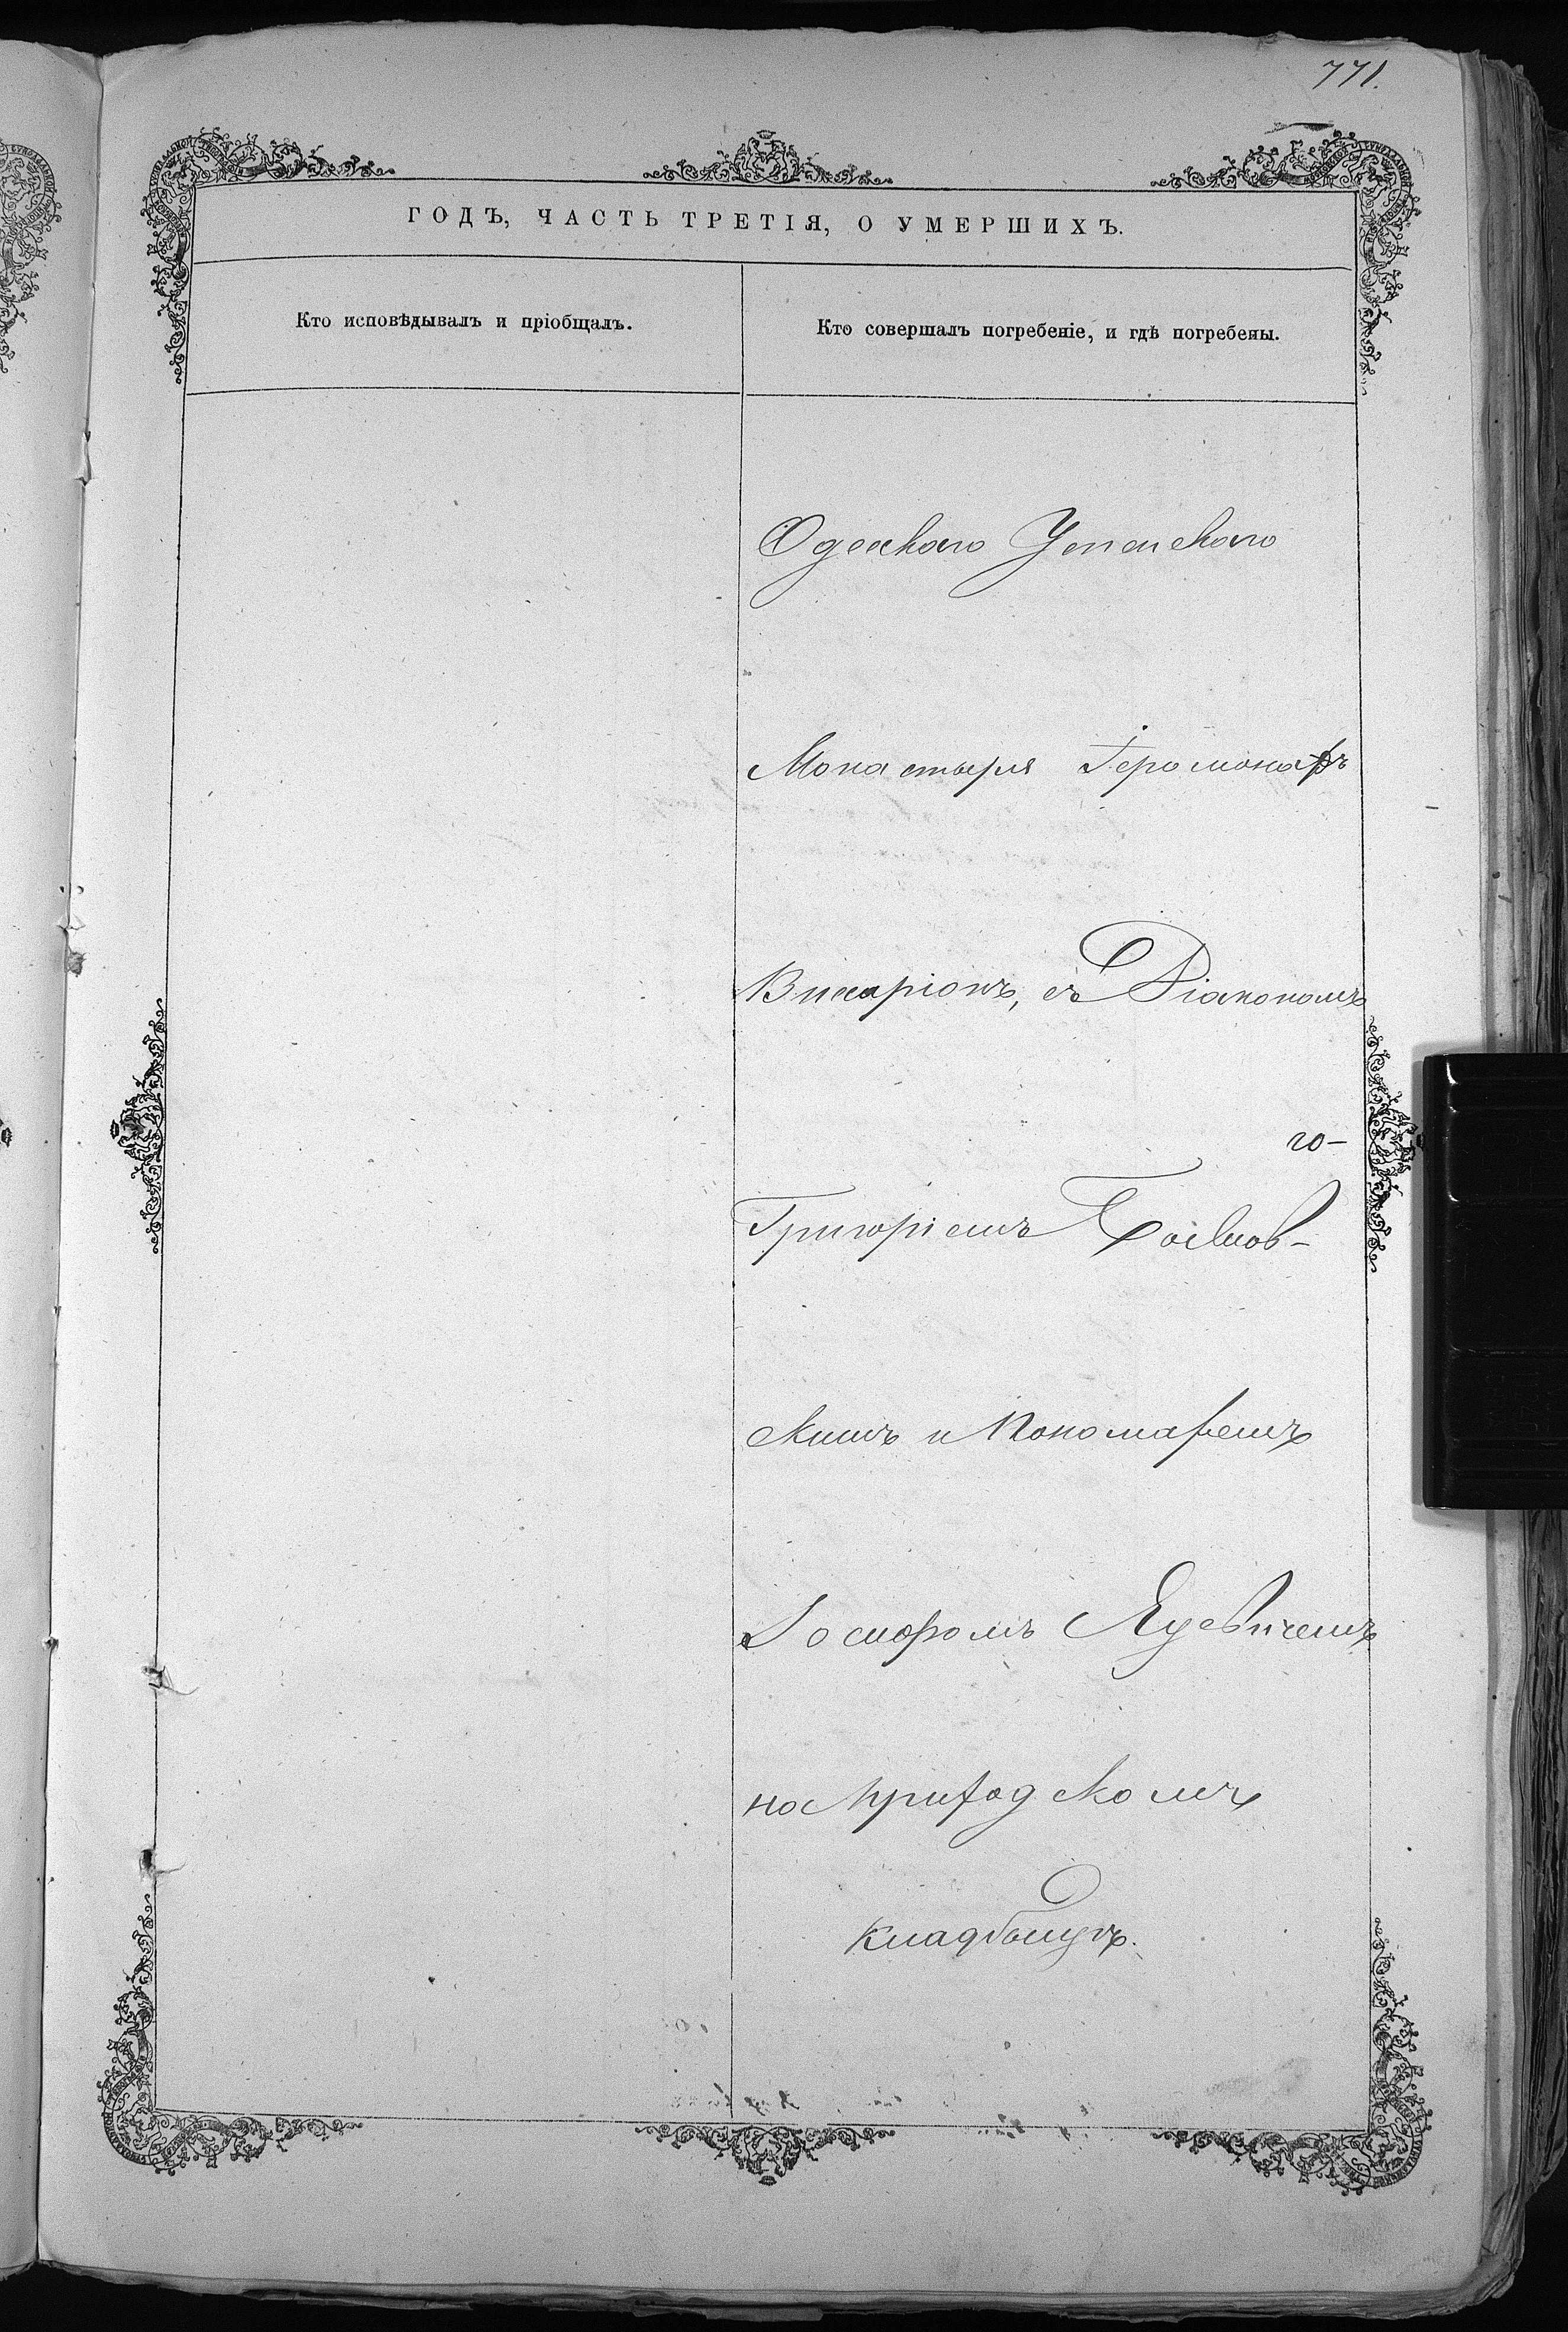 771.
ГОДЪ, ЧАСТЬ ТРЕТІЯ, О УМЕРШИХЪ.
Кто исповѣдывалъ и пріобщалъ.
Кто совершалъ погребеніе, и гдѣ погребены.
Одесскаго Успенскаго
Монастыря Іеромонахъ
Висаріонъ, съ Діакономъ
Григоріемъ
скимъ и Пономаремъ
на Приходскомъ
Кладбищѣ.